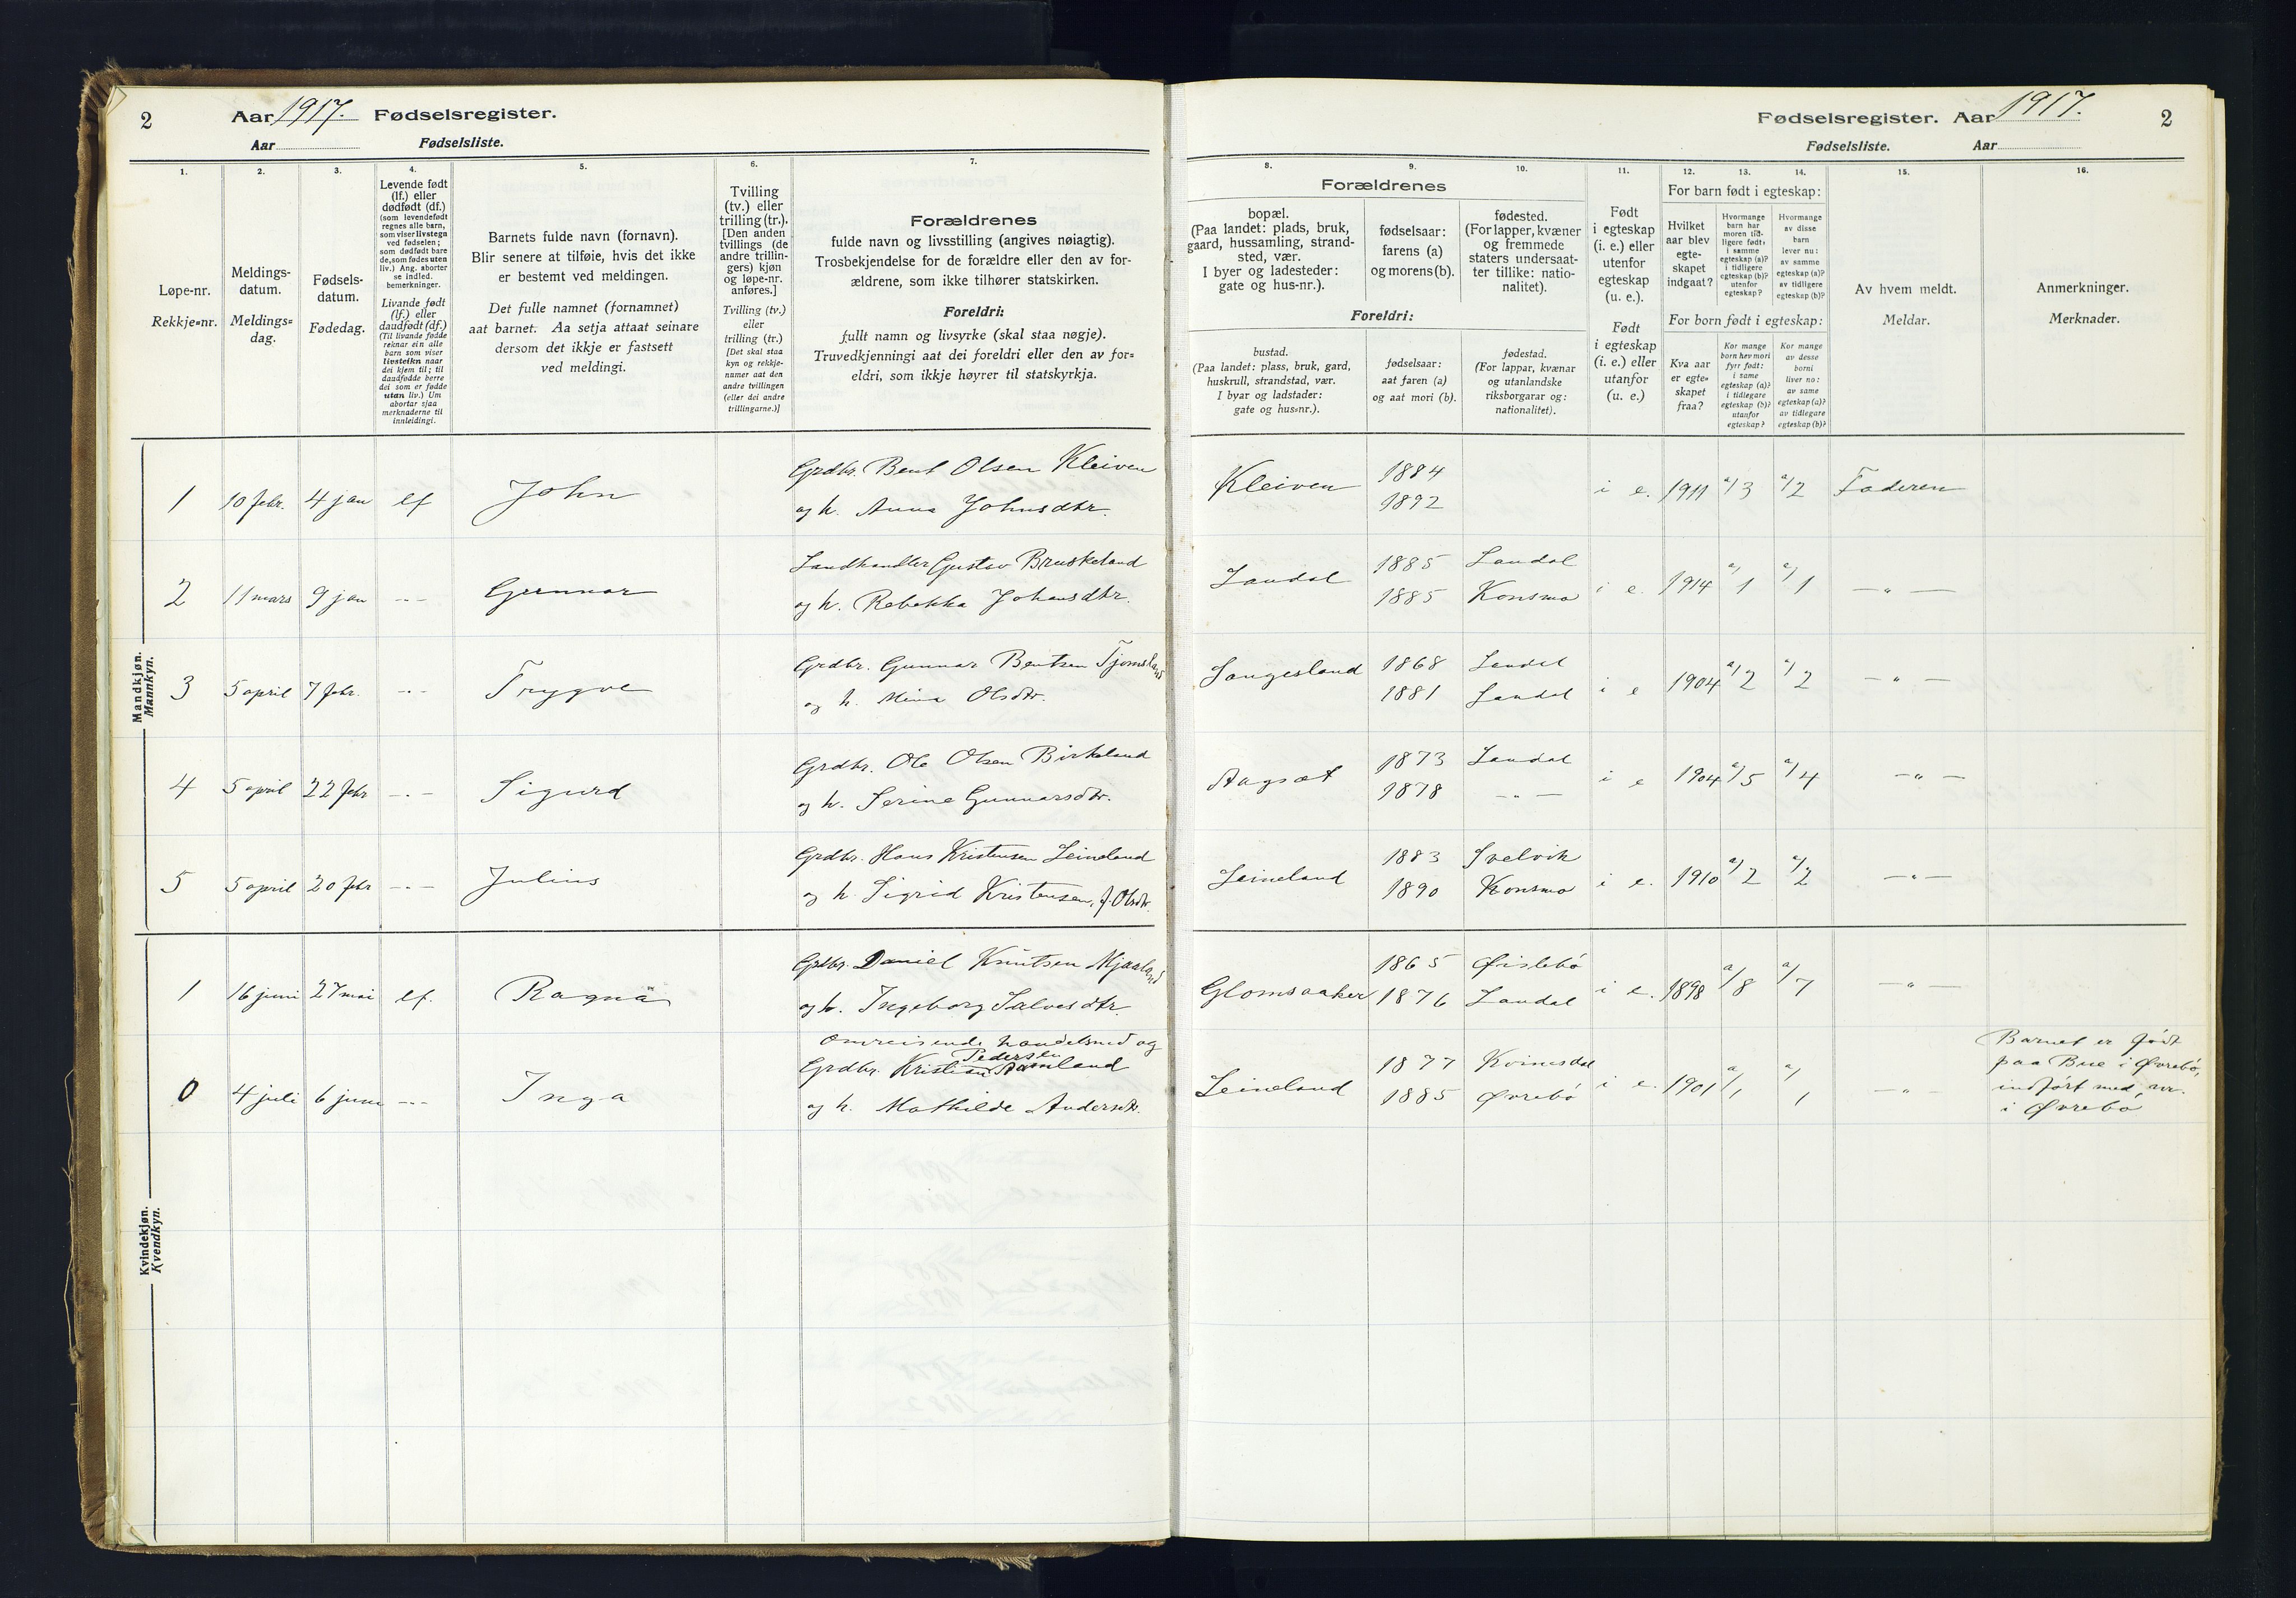 2 Aar 1917. Fødselsregister.
Aar Fødselsliste.
1. 2. 3. 4. 5. 6. 7.
Løpe-nr.
Rekkje=nr.
Meldings-
datum.
Meldings=
dag.
Fødsels-
datum.
Fødedag.
Levende født
(lf.) eller
dødfødt (df.)
(som levendefødt
regnes alle barn,
som viser livstegn
ved fødselen;
som dødfødt bare
de, som fødes uten
liv.) Ang. aborter
se indled.
bemerkninger.
Livande født
(lf.) eller
daudfødt (df.)
(Til livande fødde
reknar ein alle
barn som viser
livsteikn naar
dei kjem til; til
daudfødde berre
dei som er fødde
utan liv.) Um
abortar sjaa
merknaderne til
innleidingi.
Barnets fulde navn (fornavn).
Blir senere at tilføie, hvis det ikke
er bestemt ved meldingen.
Det fulle namnet (fornamnet)
aat barnet. Aa setja attaat seinare
dersom det ikkje er fastsett
ved meldingi.
Tvilling
(tv.) eller
trilling (tr.).
[Den anden
tvillings (de
andre trillin-
gers) kjøn
og løpe-nr.
anføres.]
Tvilling (tv.)
eller
trilling (tr.)
[Det skal staa
kyn og rekkje-
numer aat den
andre tvillingen
(eller dei andre
trillingarne.)]
Forældrenes
fulde navn og livsstilling (angives nøiagtig).
Trosbekjendelse for de forældre eller den av for-
ældrene, som ikke tilhører statskirken.
Foreldri:
fullt namn og livsyrke (skal staa nøgje).
Truvedkjenningi aat dei foreldri eller den av for=
eldri, som ikkje høyrer til statskyrkja.
Mandkjøn.
Mannkyn.
1 10 febr. 4 jan lf John Grdbr. Bent Olsen Kleiven
og h. Anna Johnsdtr.
2 11 mars 9 jan -"- Gunnar Landhandler Gustav Bruskeland
og h. Rebekka Johansdtr.
3 5 april 7 febr. -"- Trygve Grdbr. Gunnar Bentsen Tjomsland
og h. Mina Olsdtr.
4 5 april 22 febr -"- Sigurd Grdbr. Ole Olsen Birkeland
og h. Serine Gunnarsdtr.
5 5 april 20 febr -"- Julius Grdbr. Hans Kristensen Leineland
og h. Sigrid Kristensen, f. Olsdtr.
Kvindekjøn.
Kvendkyn.
1 16 juni 27 mai lf. Ragna Grdbr. Daniel Knutsen Mjaaland
og h. Ingeborg Salvesdtr.
Omreisende handelsmd og
Pedersen
0 4 juli 6 juni -"- Inga Grdbr. Kristian Aamland
og h. Mathilde Andersdtr.
Fødselsregister. Aar 1917. 2
Fødselsliste. Aar
8. 9. 10. 11. 12. 13. 14. 15. 16.
Forældrenes
bopæl.
(Paa landet: plads, bruk,
gaard, hussamling, strand-
sted, vær.
I byer og ladesteder:
gate og hus-nr.).
fødselsaar:
farens (a)
og morens (b).
fødested.
(For lapper, kvæner
og fremmede
staters undersaat-
ter tillike: natio-
nalitet).
Foreldri:
bustad.
(Paa landet: plass, bruk, gard,
huskrull, strandstad, vær.
I byar og ladstader:
gate og hus=nr.).
fødselsaar:
aat faren (a)
og aat mori (b).
fødestad.
(For lappar, kvænar
og utanlandske
riksborgarar og:
nationalitet).
Født
i egteskap
(i. e.) eller
utenfor
egteskap
(u. e.).
Født
i egteskap
(i. e.) eller
utanfor
(u. e.)
For barn født i egteskap:
Hvilket
aar blev
egte-
skapet
indgaat?
Hvormange
barn har
moren tid-
ligere født:
i samme
egteskap (a)?
i tidligere
egteskap (b)?
utenfor
egteskap?
Hvormange
av disse
barn
lever nu:
av samme
egteskap (a)?
av tidligere
egteskap (b)?
For born født i egteskap:
Kva aar
er egte=
skapet
fraa?
Kor mange
born hev mori
fyrr født:
i same
egteskap (a)?
i tidlegare
egteskap (b)?
utanfor
egteskap?
Kor mange
av desse
borni
liver no:
av same
egteskap (a)?
av tidlegare
egteskap (b)?
Av hvem meldt.
Meldar.
Anmerkninger.
Merknader.
Kleiven 1884
1892 i e. 1911 a/3 a/2 Faderen
Laudal 1885 Laudal
1885 Konsmo i e. 1914 a/1 a/1 -"-
Laugesland 1868 Laudal
1881 Laudal i e 1904 a/2 a/2 -"-
Aagsæt 1873 Laudal
1878 -"- i e 1904 a/5 a/4 -"-
Leineland 1883 Svelvik
1890 Konsmo i e. 1910 a/2 a/2 -"-
Glomsaaker 1865 Øislebø
1876 Laudal i e. 1898 a/8 a/7 -"-
Leineland 1877 Kvinesdal
1885 Øvrebø i e. 1901 a/1 a/1 -"-
Barnet er født
paa Bue i Øvrebø,
indført med nr.
i Øvrebø